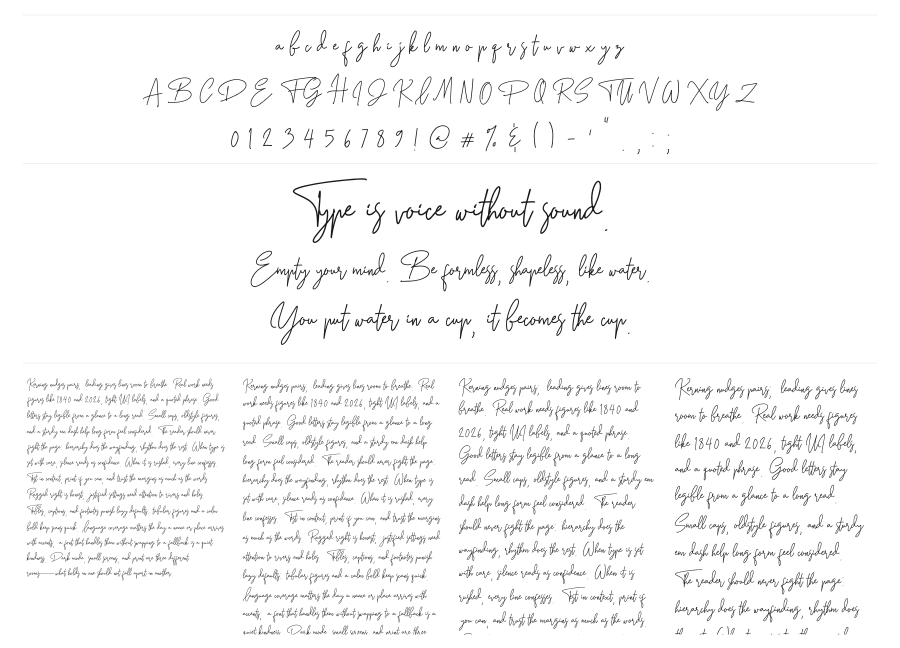 a b c d e f g h i j k l m n o p q r s t u v w x y z
A B C D E F G H I J K L M N O P Q R S T U V W X Y Z
0 1 2 3 4 5 6 7 8 9 ! @ # % & ( ) - ' " . , : ;
Type is voice without sound.
Empty your mind. Be formless, shapeless, like water.
You put water in a cup, it becomes the cup.
Kerning nudges pairs, leading gives lines room to breathe. Real work needs
figures like 1840 and 2026, tight UI labels, and a quoted phrase. Good
letters stay legible from a glance to a long read. Small caps, oldstyle figures,
and a sturdy en dash help long form feel considered. The reader should never
fight the page: hierarchy does the wayfinding, rhythm does the rest. When type is
set with care, silence reads as confidence. When it is rushed, every line confesses.
Test in context, print if you can, and trust the margins as much as the words.
Ragged right is honest, justified settings need attention to rivers and holes.
Tables, captions, and footnotes punish lazy defaults; tabular figures and a calm
bold keep rows quick. Language coverage matters the day a name or place arrives
with accents; a font that handles them without swapping to a fallback is a quiet
kindness. Dark mode, small screens, and print are three different
rooms—what holds in one should not fall apart in another.
Kerning nudges pairs, leading gives lines room to breathe. Real
work needs figures like 1840 and 2026, tight UI labels, and a
quoted phrase. Good letters stay legible from a glance to a long
read. Small caps, oldstyle figures, and a sturdy en dash help
long form feel considered. The reader should never fight the page:
hierarchy does the wayfinding, rhythm does the rest. When type is
set with care, silence reads as confidence. When it is rushed, every
line confesses. Test in context, print if you can, and trust the margins
as much as the words. Ragged right is honest, justified settings need
attention to rivers and holes. Tables, captions, and footnotes punish
lazy defaults; tabular figures and a calm bold keep rows quick.
Language coverage matters the day a name or place arrives with
accents; a font that handles them without swapping to a fallback is a
quiet kindness. Dark mode, small screens, and print are three
Kerning nudges pairs, leading gives lines room to
breathe. Real work needs figures like 1840 and
2026, tight UI labels, and a quoted phrase.
Good letters stay legible from a glance to a long
read. Small caps, oldstyle figures, and a sturdy en
dash help long form feel considered. The reader
should never fight the page: hierarchy does the
wayfinding, rhythm does the rest. When type is set
with care, silence reads as confidence. When it is
rushed, every line confesses. Test in context, print if
you can, and trust the margins as much as the words.
Kerning nudges pairs, leading gives lines
room to breathe. Real work needs figures
like 1840 and 2026, tight UI labels,
and a quoted phrase. Good letters stay
legible from a glance to a long read.
Small caps, oldstyle figures, and a sturdy
en dash help long form feel considered.
The reader should never fight the page:
hierarchy does the wayfinding, rhythm does